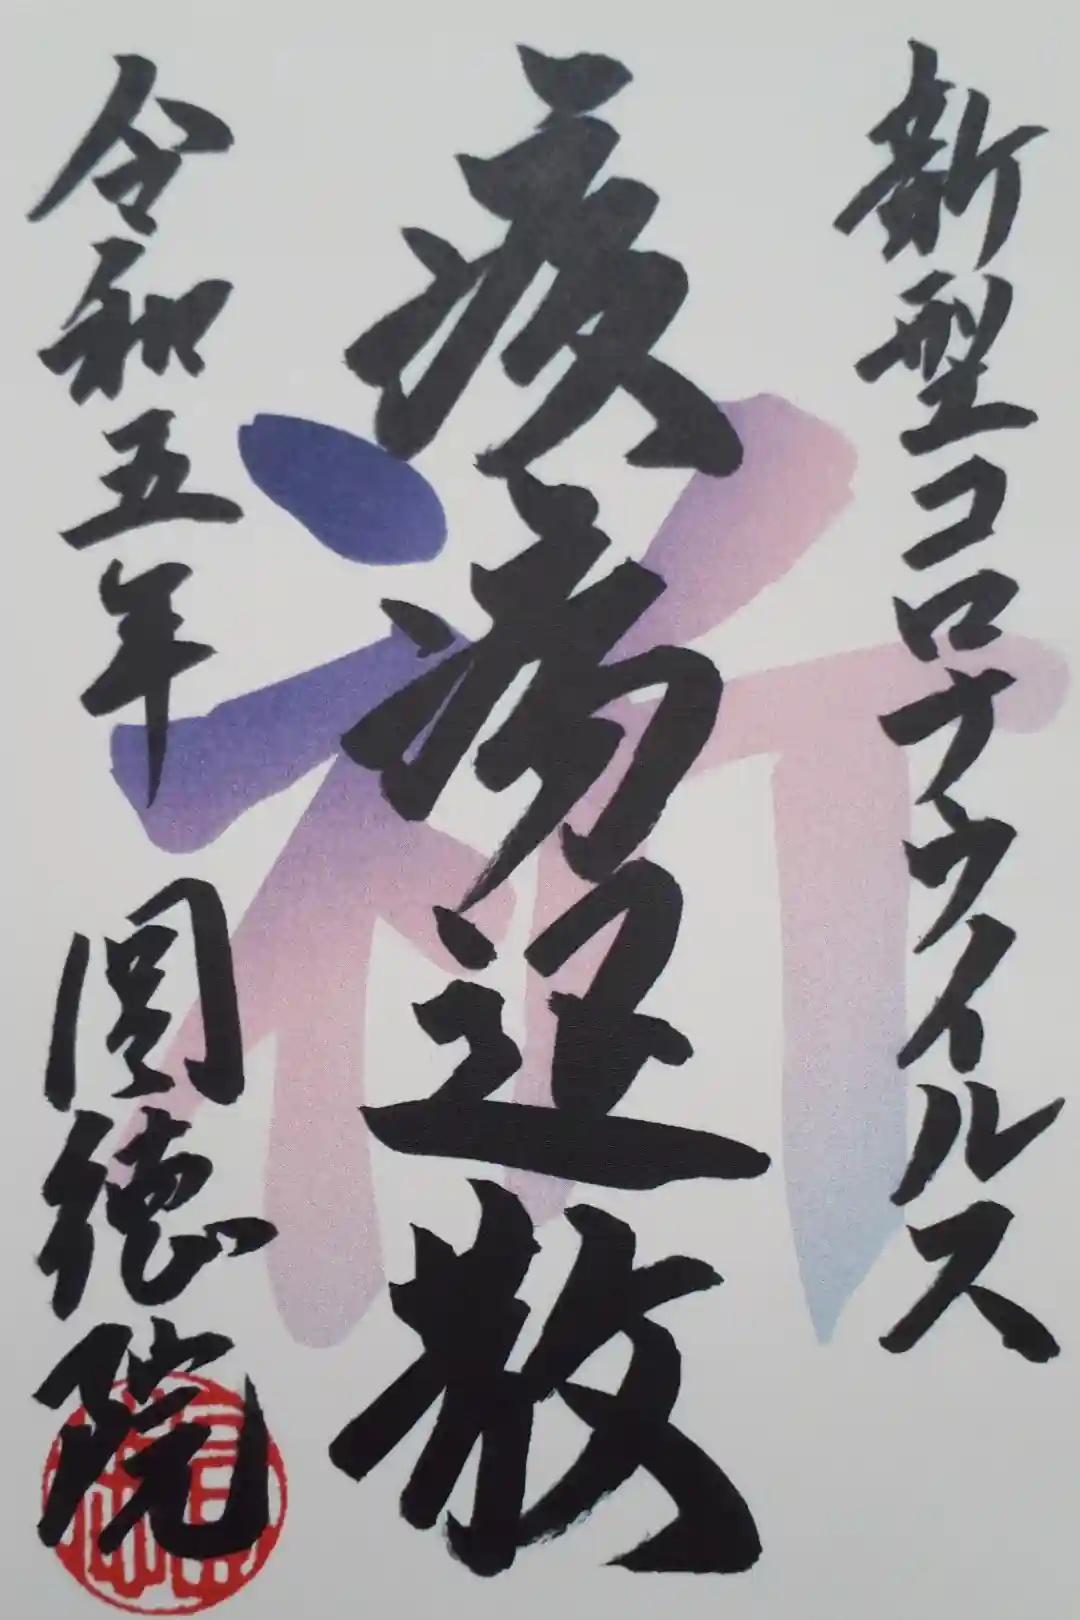 新型コロナウイルス
疫病退散
祈
令和五年 圓徳院